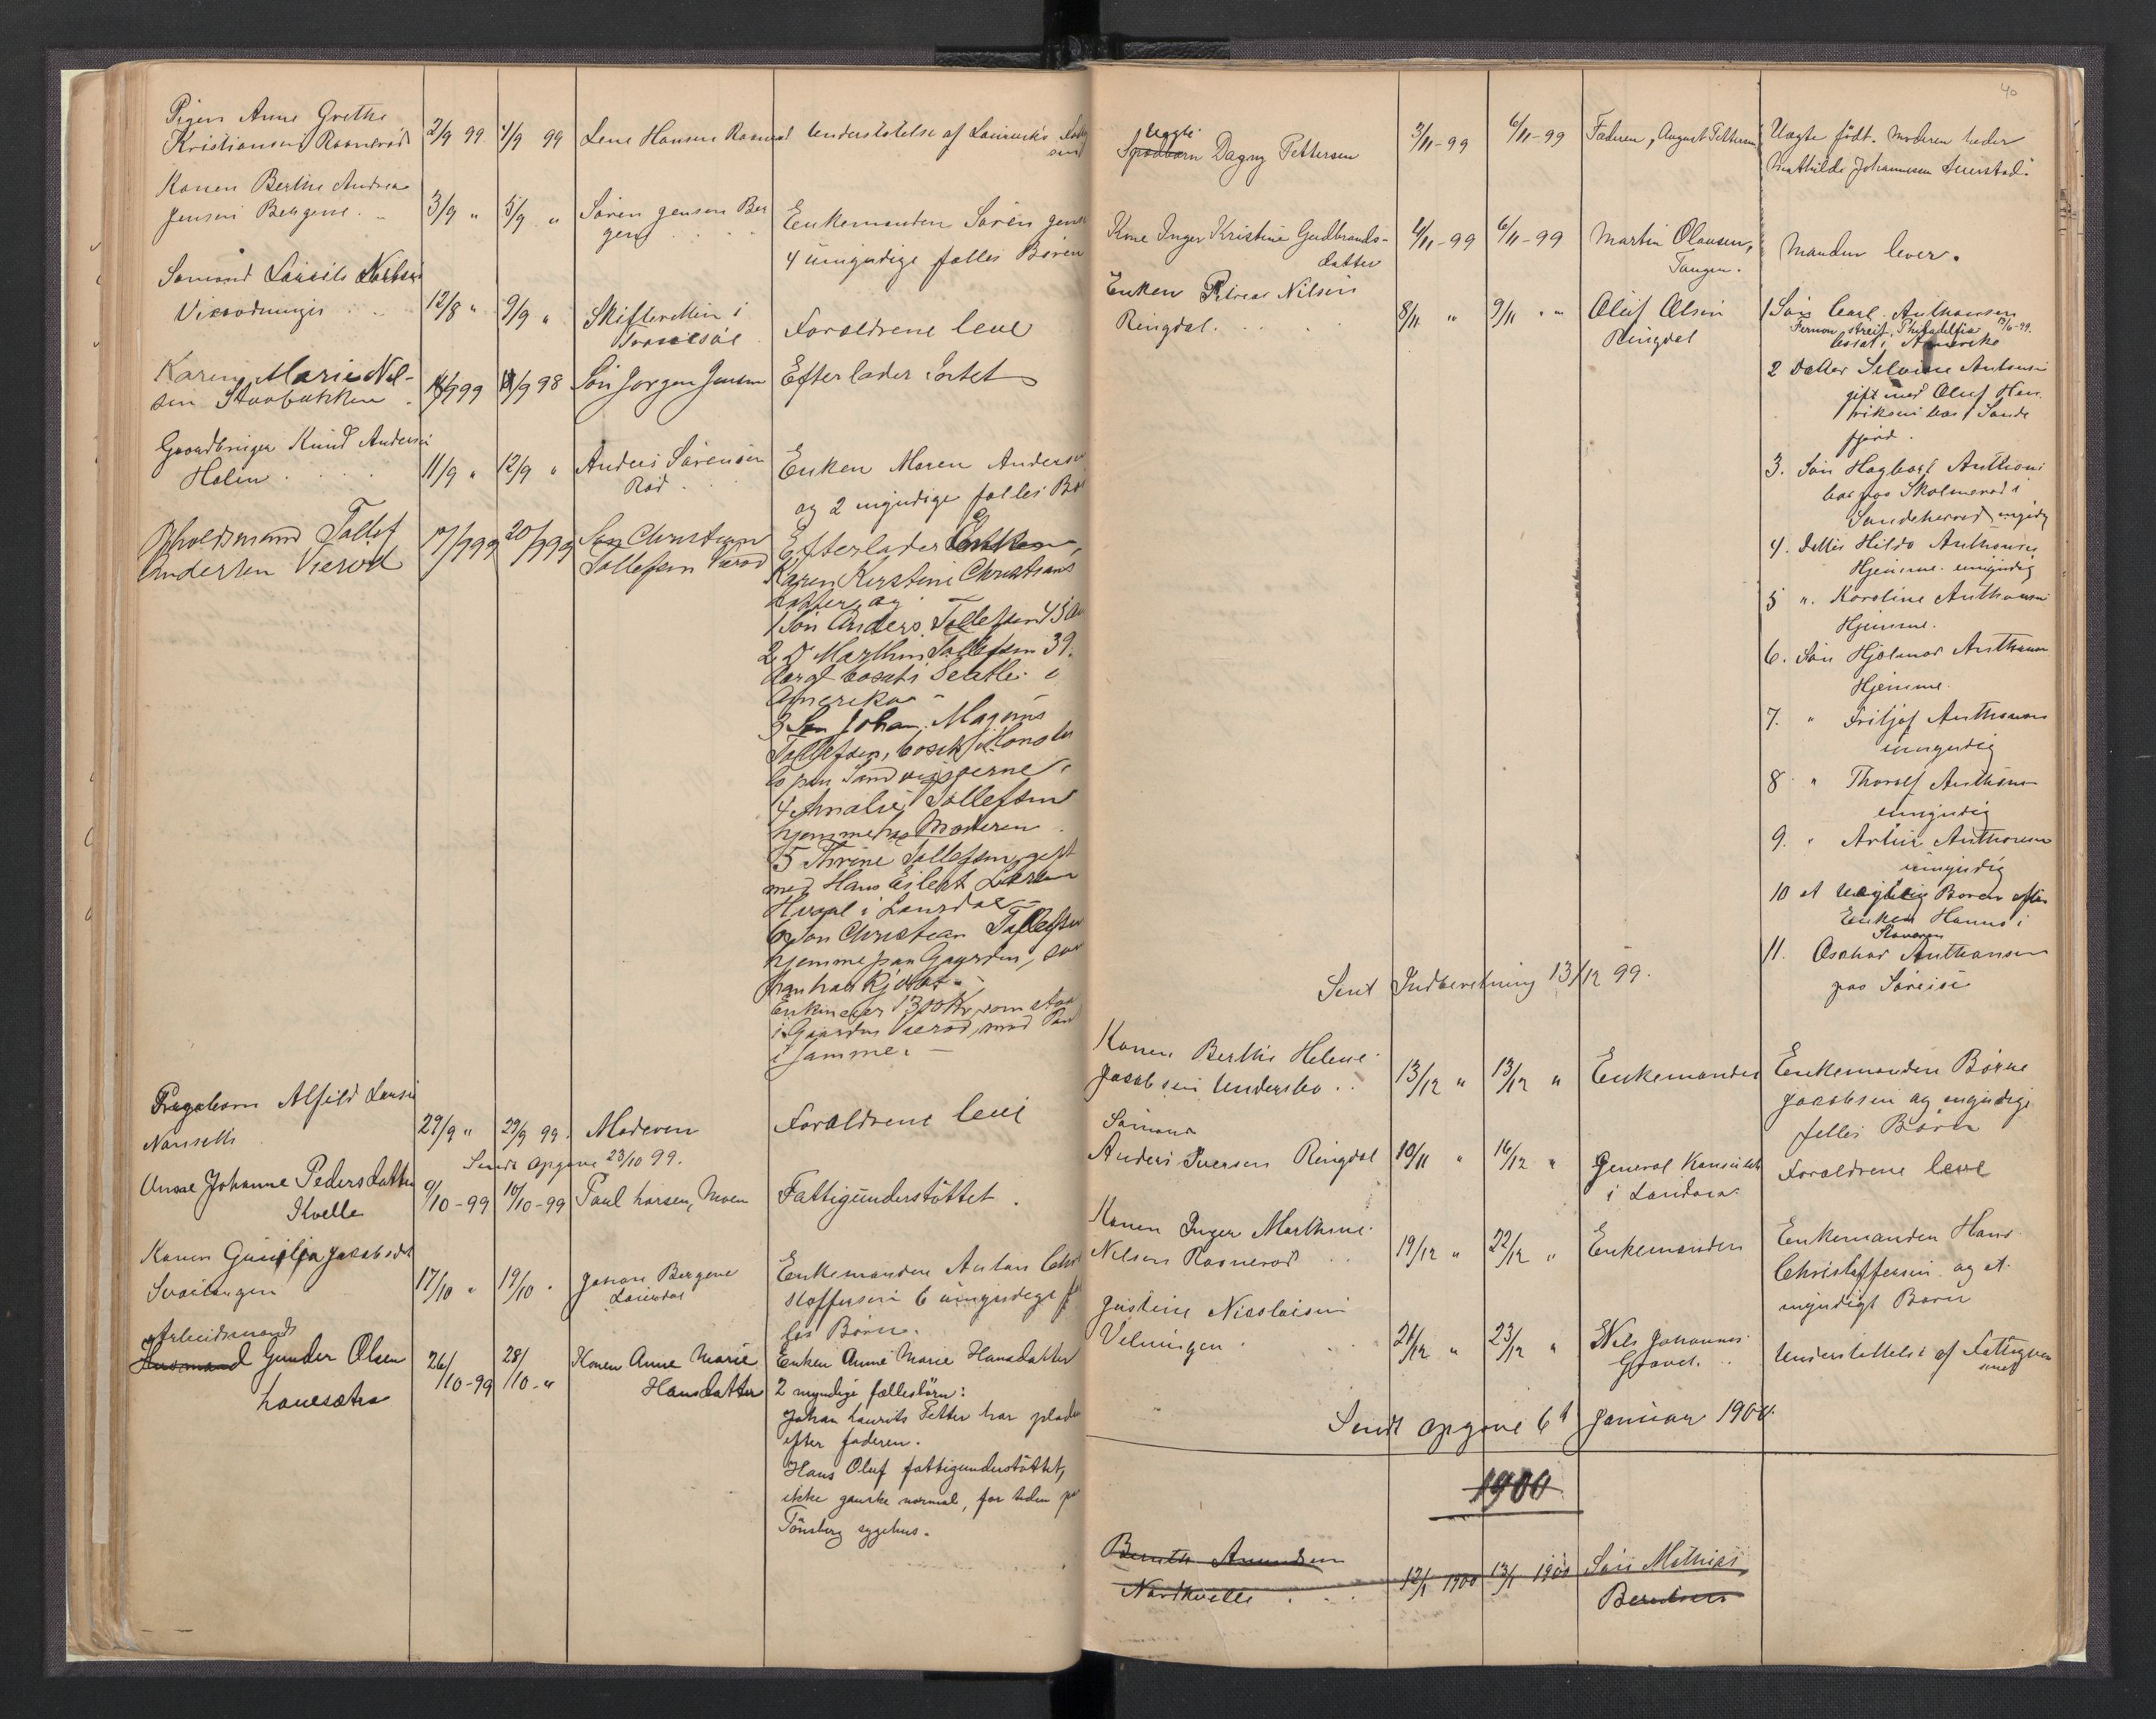 Pigen Anne Grethe
Kristiansen Ravnerød 2/9 99 4/9 99 Lene Hansen Understøttelse af
Konen Berthe Andrea
Jensen Bergene 3/9 " 5/9 " Søren Jensen Ber
gene Enkemanden Søren
4 umyndige fælles Børen
Sømand Lauritz
12/8 " 9/9 " Skifteretten i
Forældrene leve
Karen Marie Nil-
sen 99 /9 98 Søn Jørgen Jensen Efterlader intet
Gaardbruger Knud Andersen
Holen 11/9 " 12/9 " Anders Sørensen
Rød Enken Maren Andersen
og 2 myndige fælles
Tollef
Andersen Vierød 17/9 99 20/9 99 Søn Christian
Tollefsen Vierød Efterlader Enken
Karen Kirstine Christians
datter og
1 Søn Anders Tollefsen 45
2 D Marthin Tollefsen 39
bosat i Seatle i
Amerika
3 Søn Johan Magnus
Tollefsen, bosat Honolu
lo paa Sandvigøerne
4 Amalie Tollefsen
hjemme hos Moderen
5 Thrine Tollefsen gift
med Hans Eilert Larsen
i Laurdal
6 Søn Christian Tollefsen
hjemme paa Gaarden, som
han har Kjøbt
Enken eier 1300 Kr som staa
i Gaarden Vierød med Pant
i samme.
Pigebarn Alfild
27/9 " 29/9 99. Moderen Forældrene leve
Sendt Opgave 23/10 99.
Anne Johanne Pedersdatter
Kvelle 9/10-99 10/10-99 Paul Larsen, Moen Fattigunderstøttet.
Konen Jacobsdt
17/10 " 19/10 " Bergene
Laurdal Enkemanden Anton Chri
stoffersen 6 umyndige fæl
les Børn.
Arbeidsmand
Husmand Gunder Olsen
Lauesætra 26/10-99 28/10-" Konen Anne Marie
Hansdatter Enken Anne Marie Hansdatter
2 myndige fællesbørn:
Johan Laurits Petter har pladsen
efter faderen.
Hans Oluf fattigunderstøttet,
ikke ganske normal, for tiden paa
Tönsberg sygehus.
40
Uægte
Spædbarn Dagny Pettersen 3/11-99 6/11-99 Faderen, August Pettersen Uægte født. Moderen heder
Mathilde Johannesen
Kone Inger Kristine Gudbrands-
datter 4/11-99 6/11-99 Martin Olausen,
Tangen. Manden lever.
Enken Petrea Nilsen
Ringdal. 8/11 " 9/11 " " Oluf Olsen
Ringdal 1 Søn Carl Anthonsen
Philadelfia
bosat i Amerika
2 Datter Anthonsen
gift med Oluf Hen
riksen bor i Sande
fjord.
3. Søn Hagbart Anthonsen
bor paa Skolmerød i
Sandeherred myndig
4. Datter Hilda Anthonsen
Hjemme. umyndig
5 ". Karoline Anthonsen
Hjemme.
6. Søn Hjalmar Anthonsen
Hjemme.
7. " Fritjof Anthonsen
umyndig
8 " Thoralf Anthonsen
umyndig
9. " Artur Anthonsen
umyndig
10 et Barn efter
Enken Hanna i
Stavern
11. Oskar Anthonsen
paa
Sent Indberetning 13/12 99.
Konen Berthe Helene
Jacobsen Undersbo 13/12 " 13/12 " Enkemanden Enkemanden Børre
Jacobsen og myndige
felles Børn
Sømand
Anders Iversen Ringdal 10/11 " 16/12 " General Konsulatet
i London Forældrene leve
Konen Inger Marthine
Nilsen Ravnerød 19/12 " 22/12 " Enkemanden Enkemanden Hans
Christoffersen og et
myndigt Barn
Justine Nicolaisen
21/12 " 23/12 " Nils Johannes
Understøttelse af Fattigvæ
senet
Sendt opgave 6te Januar 1900.
1900
Amundsen
Nordkvelle 12/1 1900 13/1 1900 Søn Mathias
Berntsen